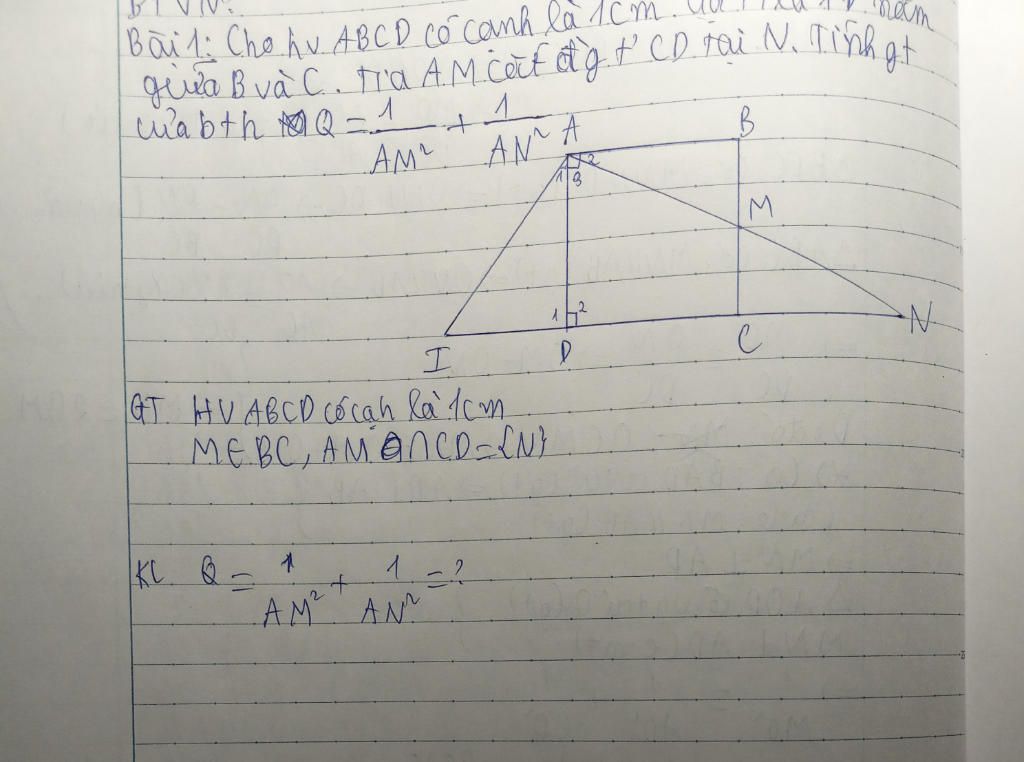 BTVN:
Bài 1: Cho hv ABCD có cạnh là 1cm. nằm
giữa B và C. tia AM cắt đg t' CD tại N. Tính gt
của b th Q = 1/AM² + 1/AN²
A
B
1 3 2
M
1 2
I D C N
GT HV ABCD có cạh là 1cm
M∈BC, AM ∩ CD = {N}
KL Q = 1/AM² + 1/AN² = ?